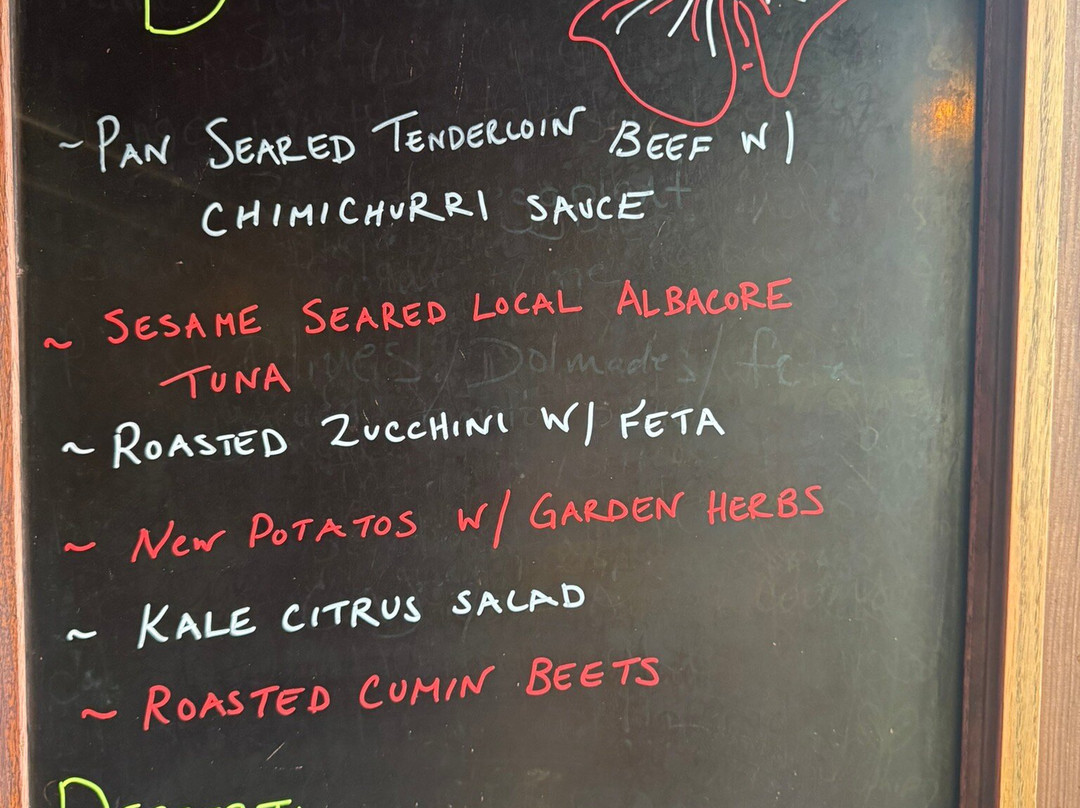 ~ PAN SEARED TENDERLOIN BEEF W/
CHIMICHURRI SAUCE
~ SESAME SEARED LOCAL ALBACORE
TUNA
~ ROASTED ZUCCHINI W/ FETA
~ NEW POTATOS W/ GARDEN HERBS
~ KALE CITRUS SALAD
~ ROASTED CUMIN BEETS